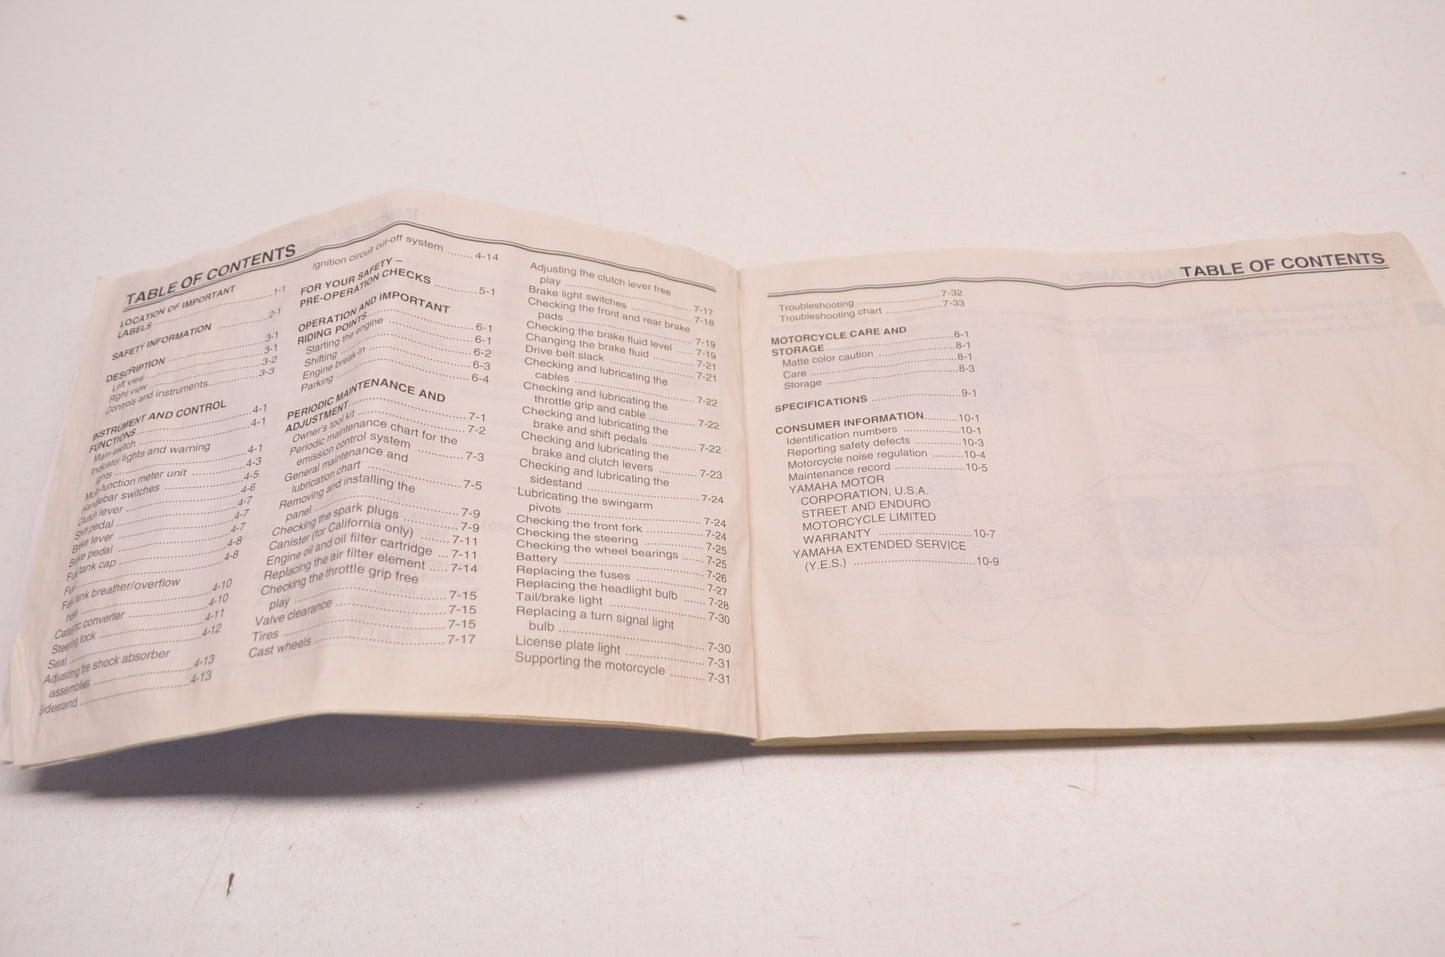 TABLE OF CONTENTS
LOCATION OF IMPORTANT
LABELS ..... 1-1
SAFETY INFORMATION ..... 2-1
DESCRIPTION ..... 3-1
Left view ..... 3-1
Right view ..... 3-2
Controls and instruments ..... 3-3
INSTRUMENT AND CONTROL
FUNCTIONS ..... 4-1
Main switch ..... 4-1
Indicator lights and warning
lights ..... 4-1
Multi-function meter unit ..... 4-3
Handlebar switches ..... 4-5
Clutch lever ..... 4-6
Shift pedal ..... 4-7
Brake lever ..... 4-7
Brake pedal ..... 4-7
Fuel tank cap ..... 4-8
Fuel ..... 4-8
Fuel tank breather/overflow
hose ..... 4-10
Catalytic converter ..... 4-10
Steering lock ..... 4-11
Seat ..... 4-12
Adjusting the shock absorber
assemblies ..... 4-13
Sidestand ..... 4-13
Ignition circuit cut-off system ..... 4-14
FOR YOUR SAFETY –
PRE-OPERATION CHECKS ..... 5-1
OPERATION AND IMPORTANT
RIDING POINTS ..... 6-1
Starting the engine ..... 6-1
Shifting ..... 6-2
Engine break-in ..... 6-3
Parking ..... 6-4
PERIODIC MAINTENANCE AND
ADJUSTMENT ..... 7-1
Owner's tool kit ..... 7-2
Periodic maintenance chart for the
emission control system ..... 7-3
General maintenance and
lubrication chart ..... 7-5
Removing and installing the
panel ..... 7-9
Checking the spark plugs ..... 7-9
Canister (for California only) ..... 7-11
Engine oil and oil filter cartridge ... 7-11
Replacing the air filter element ..... 7-14
Checking the throttle grip free
play ..... 7-15
Valve clearance ..... 7-15
Tires ..... 7-15
Cast wheels ..... 7-17
Adjusting the clutch lever free
play ..... 7-17
Brake light switches ..... 7-18
Checking the front and rear brake
pads ..... 7-19
Checking the brake fluid level ..... 7-19
Changing the brake fluid ..... 7-21
Drive belt slack ..... 7-21
Checking and lubricating the
cables ..... 7-22
Checking and lubricating the
throttle grip and cable ..... 7-22
Checking and lubricating the
brake and shift pedals ..... 7-22
Checking and lubricating the
brake and clutch levers ..... 7-23
Checking and lubricating the
sidestand ..... 7-24
Lubricating the swingarm
pivots ..... 7-24
Checking the front fork ..... 7-24
Checking the steering ..... 7-25
Checking the wheel bearings ..... 7-25
Battery ..... 7-26
Replacing the fuses ..... 7-27
Replacing the headlight bulb ..... 7-28
Tail/brake light ..... 7-30
Replacing a turn signal light
bulb ..... 7-30
License plate light ..... 7-31
Supporting the motorcycle ..... 7-31
TABLE OF CONTENTS
Troubleshooting ..... 7-32
Troubleshooting chart ..... 7-33
MOTORCYCLE CARE AND
STORAGE ..... 8-1
Matte color caution ..... 8-1
Care ..... 8-1
Storage ..... 8-3
SPECIFICATIONS ..... 9-1
CONSUMER INFORMATION ..... 10-1
Identification numbers ..... 10-1
Reporting safety defects ..... 10-3
Motorcycle noise regulation ..... 10-4
Maintenance record ..... 10-5
YAMAHA MOTOR
CORPORATION, U.S.A.
STREET AND ENDURO
MOTORCYCLE LIMITED
WARRANTY ..... 10-7
YAMAHA EXTENDED SERVICE
(Y.E.S.) ..... 10-9